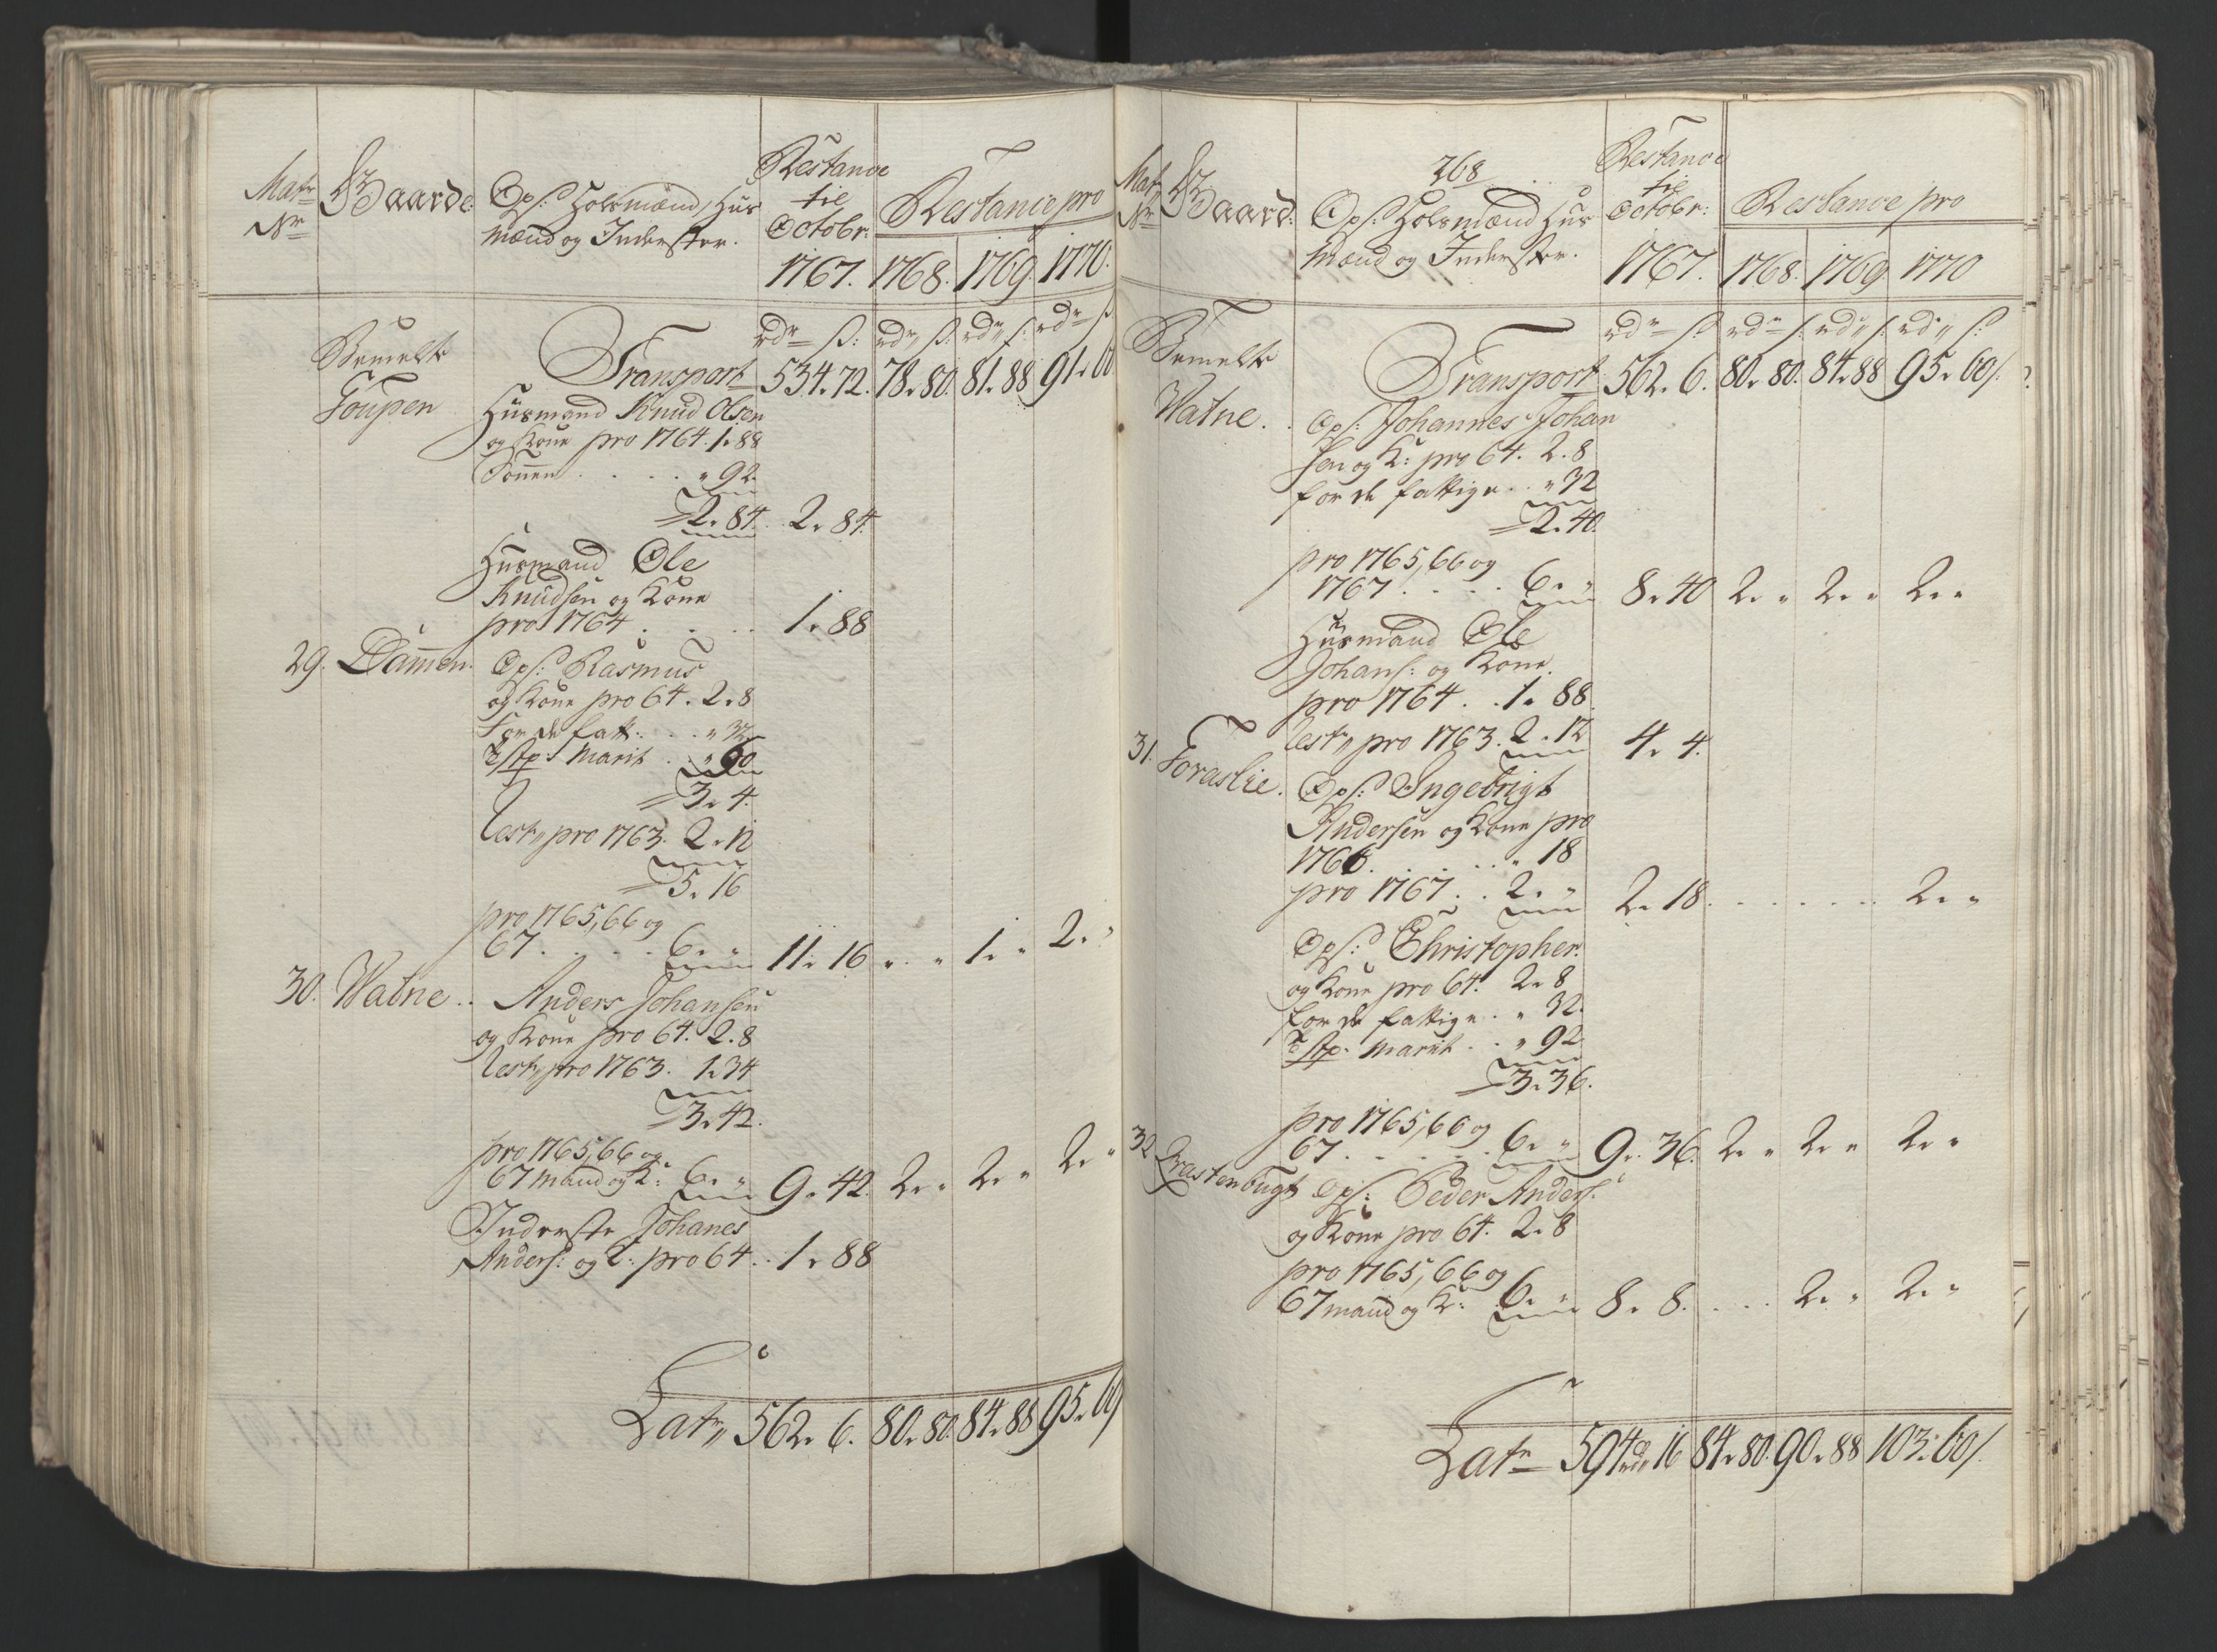 Matr
Nr
Gaarde:
Ops: Holsmænd, Hus
mænd og Inderster.
Restance
til
Octobr:
1767.
Restance pro
1768. 1769 1770.
Bemelte
Toupen
rdr ß: rdr ß: rdr ß: rdr ß
Transport 534. 72. 78. 80. 81. 88 91. 60
Husmand Knud Olsen
og Kone pro 1764. 1. 88
Sønnen . . . . " 92.
2. 84. . 2. 84.
Husmand Ole
Knudsen og Kone
pro 1764 . . . . 1. 88
29. Dammen. Ops: Rasmus
og Kone pro 64. 2. 8
For de fatt: . . " 32
marit . . " 60
3. 4.
Rest: pro 1763. 2. 12
5. 16
pro 1765, 66 og
67. . . . . 6. " 11. 16 " . " 1. " 2. "
30. Watne . . Anders Johansen
og Kone pro 64. 2. 8
Rest: pro 1763. 1. 34
3. 42.
pro 1765, 66 og
67 mand og K: 6. " 9. 42. 2. " 2. " 2. "
Inderste Johanes
Anders: og K: pro 64. . 1. 88
Latr 562. 6. 80. 80. 84. 88 95. 60
Matr
Nr
Gaard:
268
Ops: Holsmænd Hus
mænd og Inderster.
Restance
til
Octobr:
1767.
Restance pro
1768. 1769 1770
Bemelte
Watne.
rdr ß: rdr ß: rdr ß: rdr ß:
Transport 562. 6. 80. 80. 84. 88 95. 60
Ops: Johannes Johan
sen og K: pro 64. 2. 8
for de fattige . . " 32
2. 40.
pro 1765, 66 og
1767. . . . 6. " 8. 40 2. " 2. " 2. "
Husmand Ole
Johans: og Kone
pro 1764 . . 1. 88
Rest: pro 1763. 2. 12 4. 4.
31. Foraslie. Ops: Ingebrigt
Andersen og Kone pro
1766. . . . . . " 18
pro 1767. . 2. " 2. 18. . . . . . . 2. "
Ops: Christopher
og Kone pro 64. 2. 8
for de fattige . " 32.
Marit . . " 92
3. 36.
pro 1765, 66 og
67. . . . . . 6. " 9. 36. 2. " 2. " 2. "
32 Ops: Peder Anders:
og Kone pro 64. 2. 8
pro 1765, 66 og
67 mand og K: 6. " 8. 8. . . . 2. " 2. "
Latr 594 16 84. 80. 90. 88 103. 60